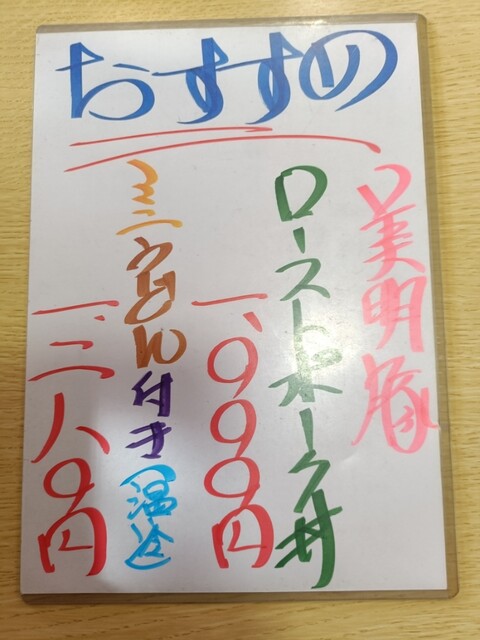 おすすめ
美明豚
ローストポーク丼
一、000円
ミニうどん付き(温冷)
一、二八0円